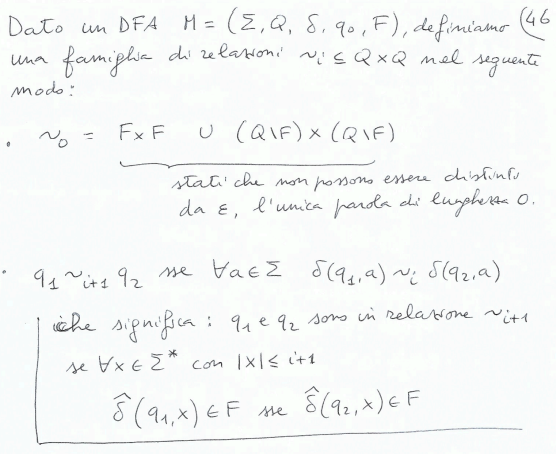 Dato un DFA M = (Σ, Q, δ, q₀, F), definiamo (46
una famiglia di relazioni ~ᵢ ⊆ Q×Q nel seguente
modo:
• ~₀ = F×F ∪ (Q\F)×(Q\F)
stati che non possono essere distinti
da ε, l'unica parola di lunghezza 0.
• q₁ ~ᵢ₊₁ q₂ sse ∀a∈Σ δ(q₁,a) ~ᵢ δ(q₂,a)
che significa: q₁ e q₂ sono in relazione ~ᵢ₊₁
se ∀x∈Σ* con |x|≤ i+1
δ̂(q₁,x)∈F sse δ̂(q₂,x)∈F